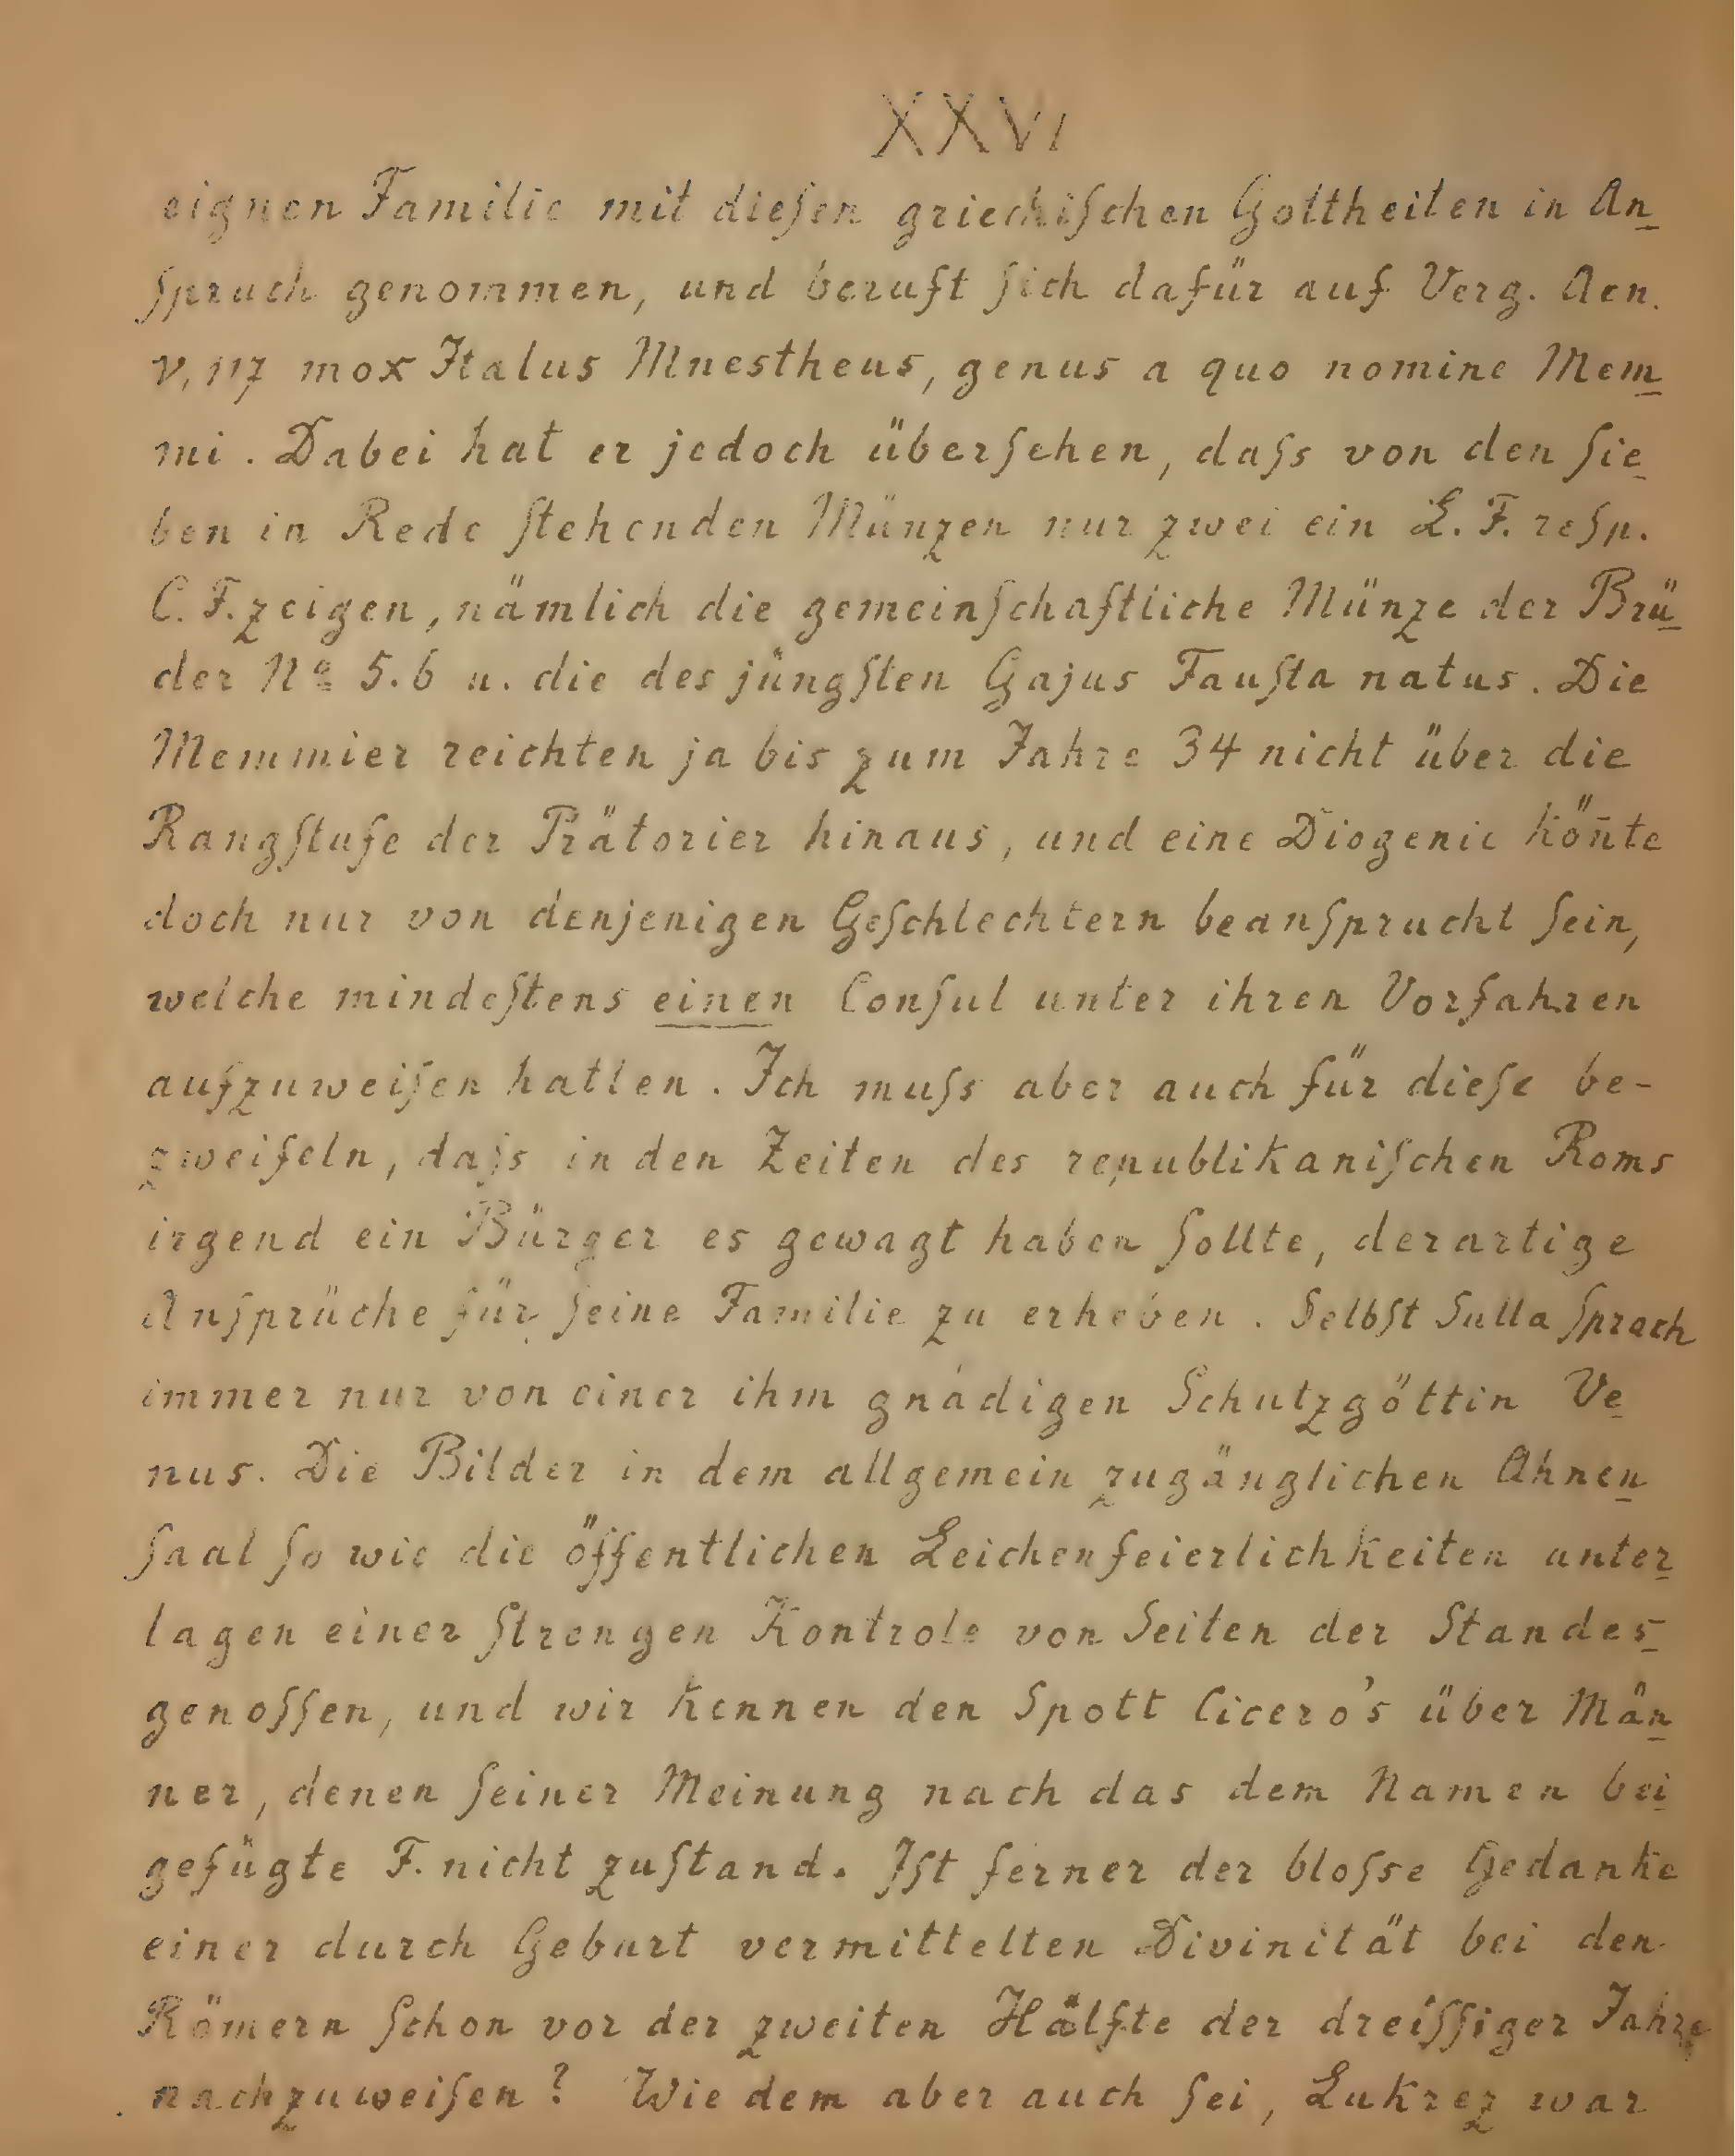 XXVI
eignen Familie mit dieſen griechiſchen Gottheiten in An
ſpruch genommen, und beruft ſich dafür auf Verg. Aen.
V, 117 mox Italus Mnestheus, genus a quo nomine Mem
mi. Dabei hat er jedoch überſehen, daſs von den ſie
ben in Rede ſtehenden Münzen nur zwei ein L. F. reſp.
C. F. zeigen, nämlich die gemeinſchaftliche Münze der Brü
der No 5.6 u. die des jüngſten Gajus Fauſta natus. Die
Memmier reichten ja bis zum Jahre 34 nicht über die
Rangſtufe der Prätorier hinaus, und eine Diogenie kön̄te
doch nur von denjenigen Geſchlechtern beanſprucht ſein,
welche mindeſtens einen Conſul unter ihren Vorfahren
aufzuweiſen hatten. Ich muſs aber auch für dieſe be-
zweifeln, daſs in den Zeiten des republikaniſchen Roms
irgend ein Bürger es gewagt haben ſollte, derartige
Anſprüche für ſeine Familie zu erheben. Selbſt Sulla ſprach
immer nur von einer ihm gnädigen Schutzgöttin Ve
nus. Die Bilder in dem allgemein zugänglichen Ahnen
ſaal ſo wie die öffentlichen Leichenfeierlichkeiten unter
lagen einer ſtrengen Kontrole von Seiten der Standes
genoſſen, und wir kennen den Spott Cicero's über Män
ner, denen ſeiner Meinung nach das dem Namen bei
gefügte F. nicht zuſtand. Iſt ferner der bloſse Gedanke
einer durch Geburt vermittelten Divinität bei den
Römern ſchon vor der zweiten Hälfte der dreiſſiger Jahre
nachzuweiſen? Wie dem aber auch ſei, Lukrez war